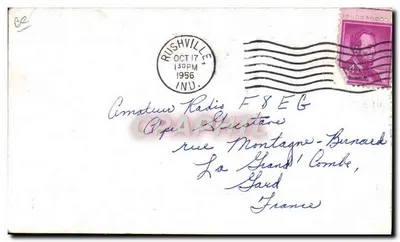 RUSHVILLE,
OCT 17
1 30 PM
1956
IND.
Amateur Radio F8EG
rue Montagne-Bernard
La Grand' Combe,
Gard
France